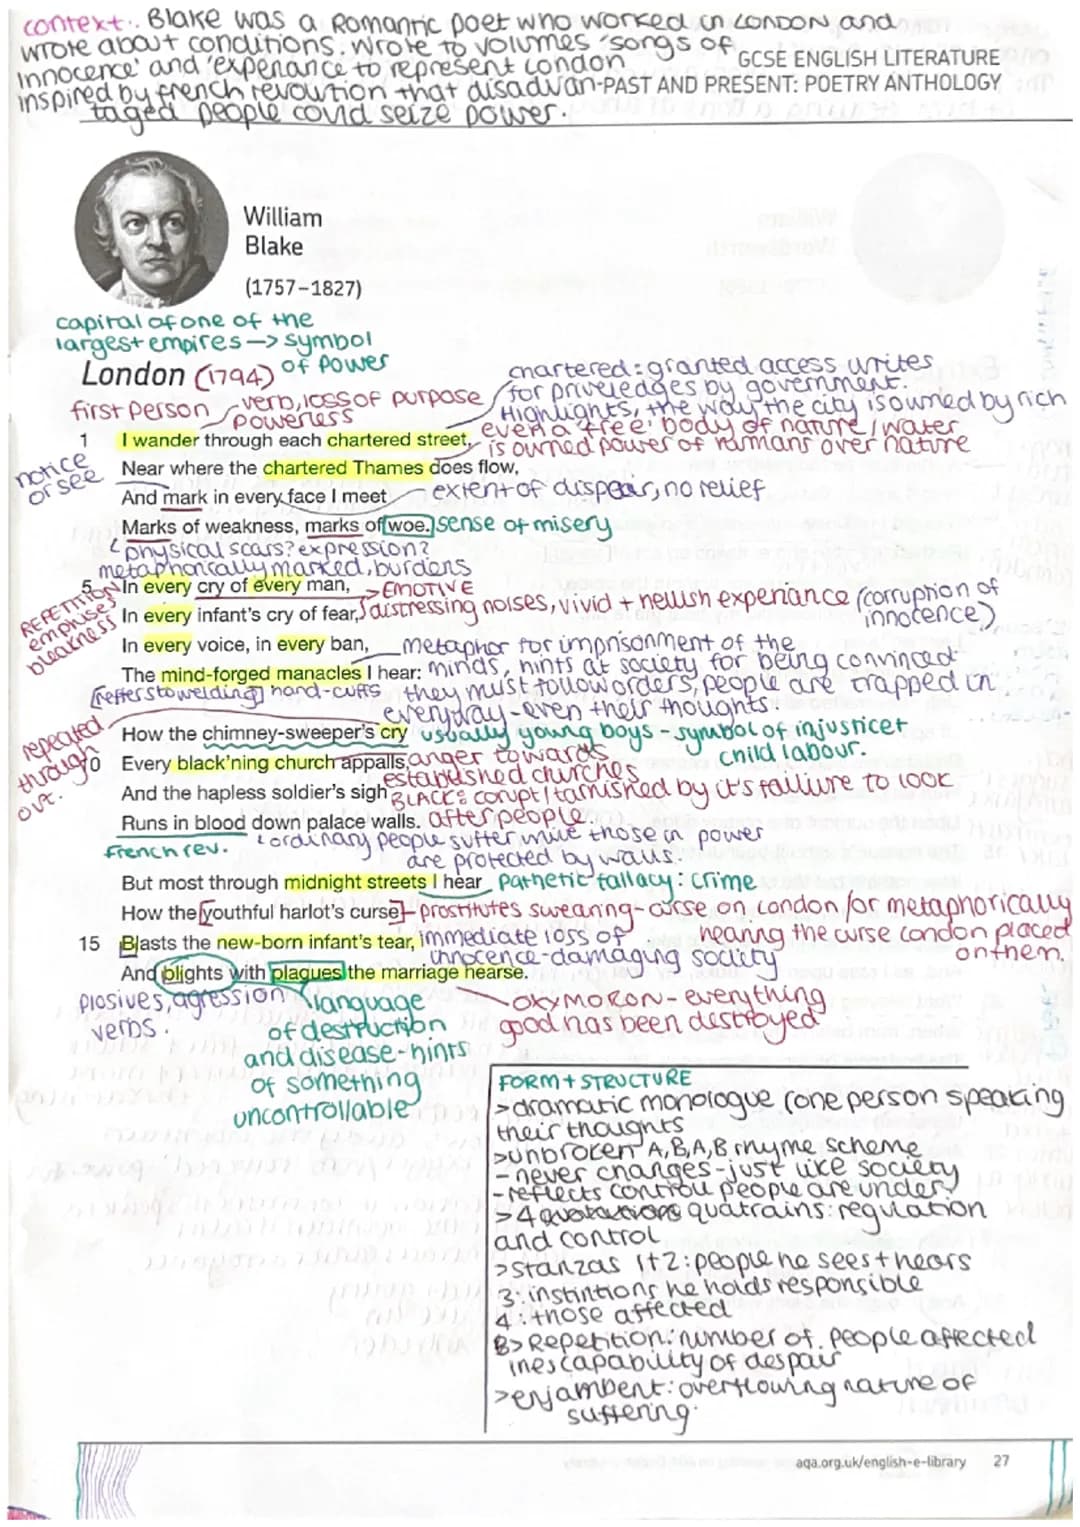 context:. Blake was a Romantic poet who worked in London and
wrote about conditions. Wrote to volumes 'songs of
innocence' and 'experiance to represent London
inspired by french revoution that disadvan-
taged people covid seize power.
GCSE ENGLISH LITERATURE
PAST AND PRESENT: POETRY ANTHOLOGY
William
Blake
(1757–1827)
capital of one of the
largest empires -> symbol
of power
London (1794)
chartered: granted access writes
for priveledges by government.
Highlights, the way the city is owned by rich
even a 'free' body of nature / water
is owned power of humans over nature
first person
verb, loss of purpose
powerless
1 I wander through each chartered street,
notice
or see
Near where the chartered Thames does flow,
And mark in every face I meet
extent of dispear, no relief
Marks of weakness, marks of woe.
sense of misery
physical scars? expression?
metaphorically marked. burdans
REPETITION
emphises
bleakness
5 In every cry of every man,
> EMOTIVE
In every infant's cry of fear,
distressing noises, vivid + hellish experiance (corruption of
innocence)
In every voice, in every ban,
metaphor for imprisonment of the
The mind-forged manacles I hear:
minds, hints at society for being convinced
[reffers to welding] hand-cuffs
they must follow orders, people are trapped in
everyday - even their thoughts.
repeated
through
out.
How the chimney-sweeper's cry
usually young boys - symbol of injustice +
child labour.
10 Every black'ning church appalls,
anger towards
established churches
And the hapless soldier's sigh
BLACK: corupt / tarnished by it's failiure to look
after people.
Runs in blood down palace walls.
French rev.
ordinary people suffer while those in power
are protected by walls.
But most through midnight streets I hear
Pathetic fallacy: crime
How the youthful harlot's curse
prostitutes swearing - curse on London / or metaphorically
hearing the curse London placed
on them.
15 Blasts the new-born infant's tear,
immediate loss of
innocence - damaging society
And blights with plagues the marriage hearse.
plosives, agression
verbs.
language
of destruction
and disease - hints
of something
uncontrollable
OXYMORON - everything
good has been destroyed
FORM + STRUCTURE
> dramatic monologue (one person speaking
their thoughts
> unbroken A,B,A,B rhyme scheme
- never changes - just like society
- reflects controll people are under.
> 4 quatrains: regulation
and control
> stanzas 1+2: people he sees + hears
3: instintions he holds responsible
4: those affected
> Repetition: number of people affected
inescapability of despair
> enjambent: overflowing nature of
suffering
aqa.org.uk/english-e-library 27